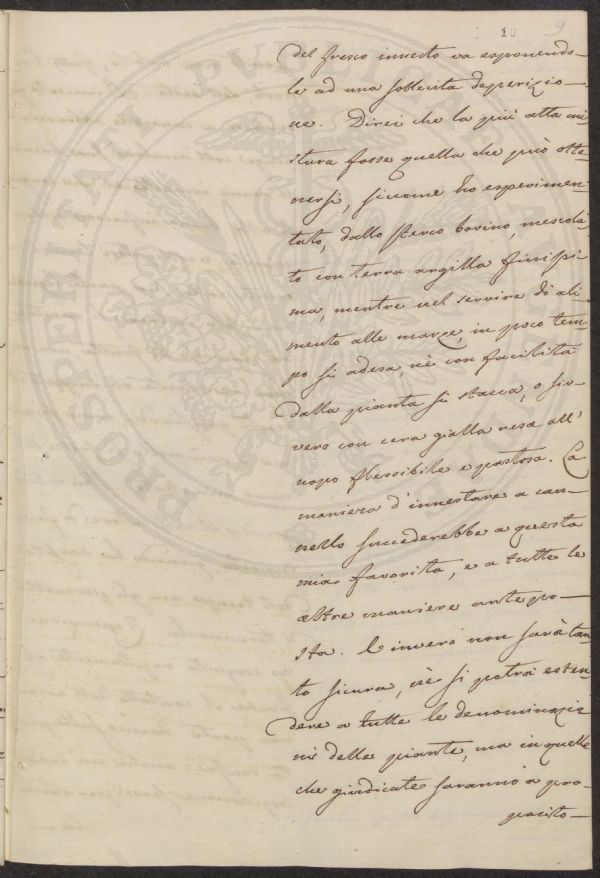 10 9
del fresco innesto va esponendo-
le ad una sollecita deperizio-
ne. Direi che la più atta mi-
stura fosse quella che può otte-
nersi, siccome ho esperimen-
tato, dallo sterco bovino, mescola-
to con terra argilla finissi-
ma, mentre nel servire di ali-
mento alle marze, in poco tem-
po si adesa, nè con facilità
dalla pianta si stacca, o siv-
vero con cera gialla resa all'
uopo flessibile e pastosa. La
maniera d'innestare a can-
nello succederebbe a questa
mia favorita, e a tutte le
altre maniere antepo-
sta. E invero non sarà tan-
to sicura, nè si potrà esten-
dere a tutte le denominazio
ni delle piante, ma in quelle
che giudicate saranno a pro-
posito
PROSPERITATI PUBLICAE